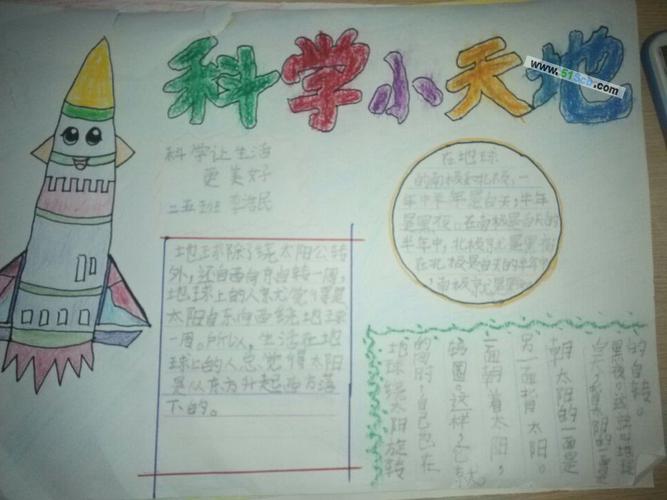 科学小天地
www.51Scb.com
科学让生活
更美好
二五班 李浩民
在地球
的南极和北极,一
年中半年是白天,半年
是黑夜。在南极是白天的
半年中,北极就是黑夜
在北极是白天的半年中
,南极就是黑夜
地球除了绕太阳公转
外,还自西向东自转一周,
地球上的人总觉得是
太阳自东向西绕地球
一周。所以,生活在地
球上的人总觉得太阳
是从东方升起西方落
下的。
地球绕太阳旋转
的同时,自己也在
转圈。这样,它就
一面朝着太阳,
另一面背太阳。
朝太阳的一面是
白天,背太阳的一面是
黑夜。这就叫地球
的自转。